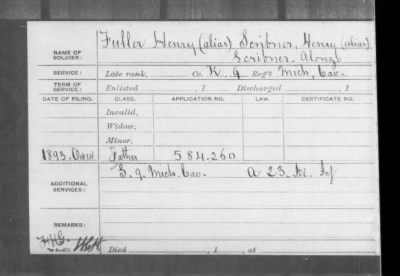 Fuller Henry (alias) Scribner, Henry (alias)
NAME OF SOLDIER: Scribner, Alonzo
SERVICE: Late rank, Co. K, 9 Reg't Mich, Cav.
TERM OF SERVICE: Enlisted , 1 Discharged , 1
DATE OF FILING. CLASS. APPLICATION NO. LAW. CERTIFICATE NO.
Invalid,
Widow,
Minor,
1893. Father 584.260
ADDITIONAL SERVICES: 9. Mich. Cav. A 23. Inf
REMARKS:
Died , 1 , at